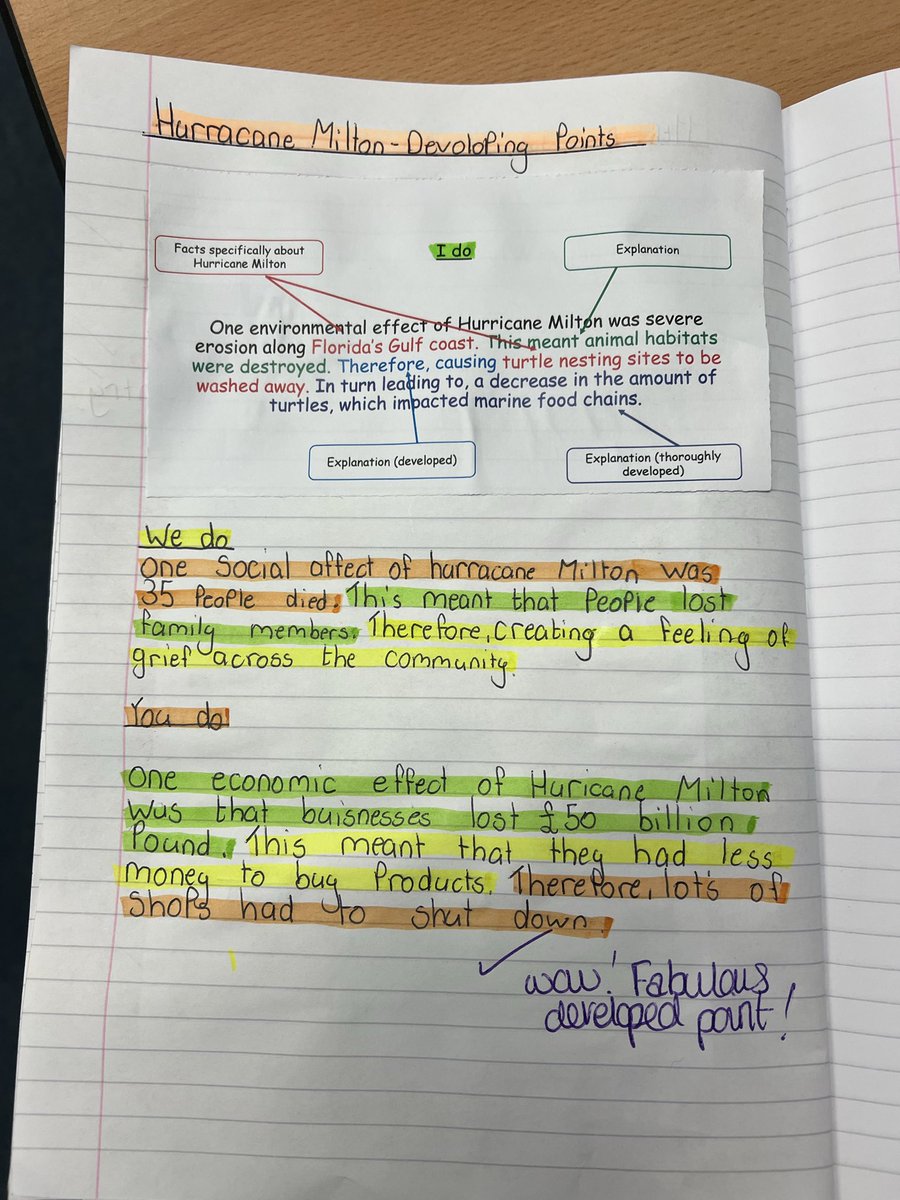 Hurracane Milton - Devoloping Points
Facts specifically about
Hurricane Milton
I do
Explanation
One environmental effect of Hurricane Milton was severe
erosion along Florida's Gulf coast. This meant animal habitats
were destroyed. Therefore, causing turtle nesting sites to be
washed away. In turn leading to, a decrease in the amount of
turtles, which impacted marine food chains.
Explanation (developed)
Explanation (thoroughly
developed)
We do
One Social affect of hurracane Milton was
35 People died. This meant that People lost
family members. Therefore, creating a feeling of
grief across the community.
You do
One economic effect of Huricane Milton
wus that buisnesses lost £50 billion
Pound. This meant that they had less
money to buy Products. Therefore, lot's of
Shops had to shut down.
wow! Fabulous
developed point!